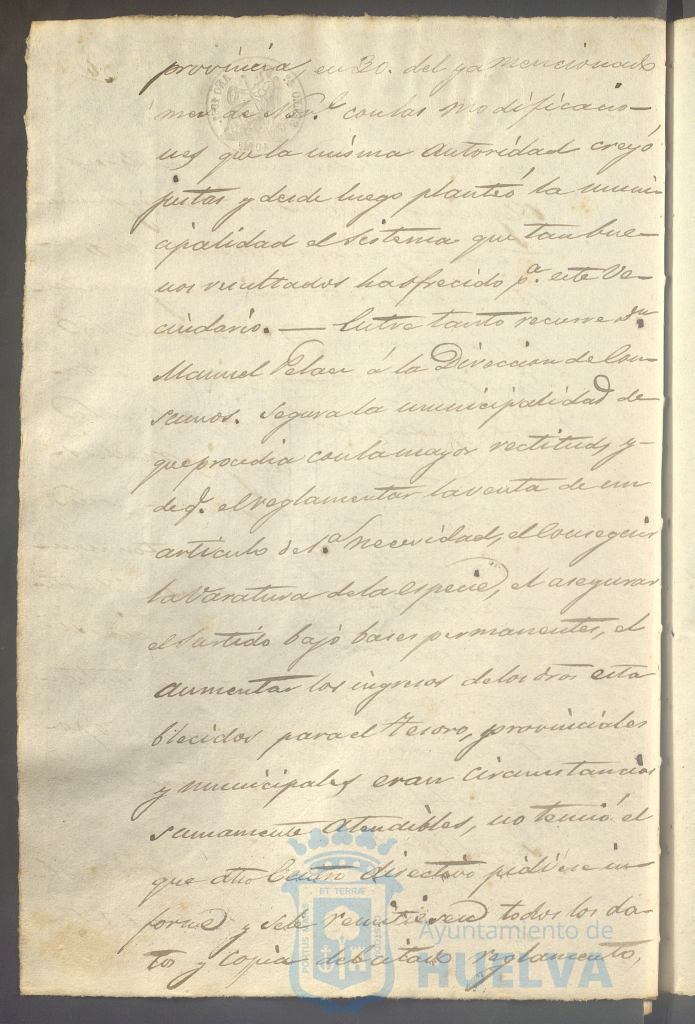 provincia, en 30. del ya mencionado
mes de Nov.e con las modificacio-
nes que la misma autoridad creyó
justas y desde luego planteó la muni-
cipalidad el sistema que tan bue-
nos resultados ha ofrecido p.a este Ve-
cindario. — Entre tanto recurre D.n
Manuel Pelaez á la Direccion de Con-
sumos. Segura la municipalidad de
que procedia con la mayor rectitud, y
de q.e el reglamentar la venta de un
articulo de 1.a necesidad, el conseguir
la Varatura de la especie, el asegurar
el surtido bajo bases permanentes, el
aumentar los ingresos de los dros esta
blecidos para el tesoro, provinciales
y municipales, eran circunstancias
sumamente atendibles, no temió el
que dho Centro directivo pidiese in-
forme y se le remitiesen todos los da-
tos y copia del citado reglamento,
ET TERRAE
PORTUS
Ayuntamiento de
HUELVA